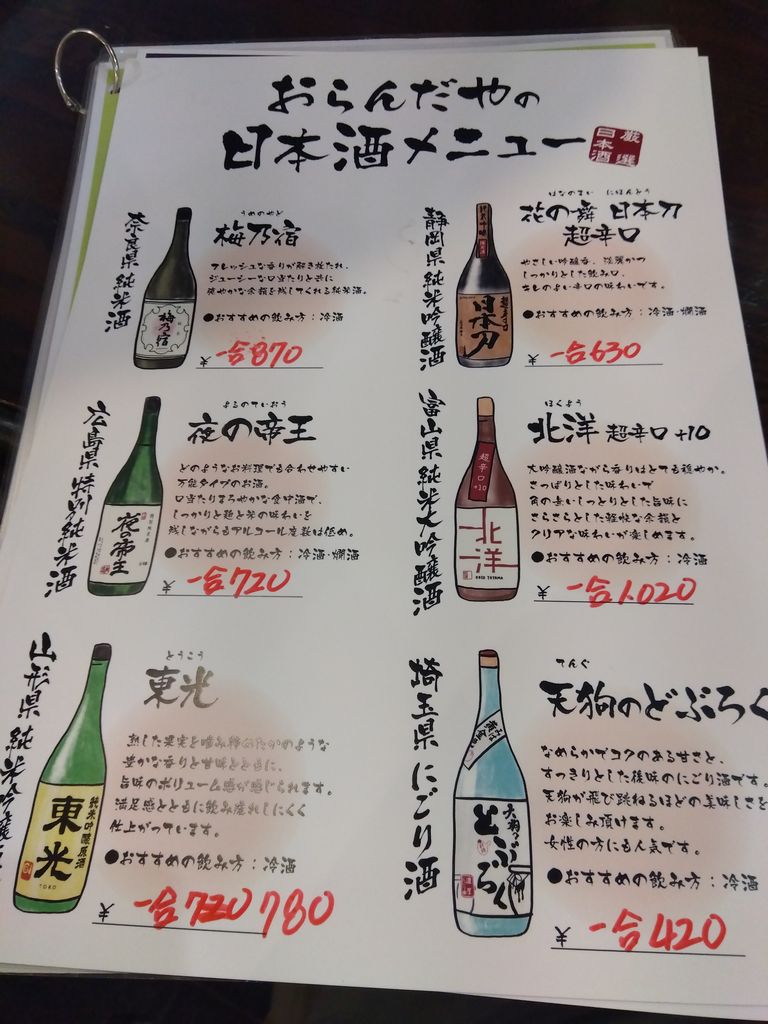 おらんだやの
日本酒メニュー
厳選
日本酒
奈良県 純米酒
うめのやど
梅乃宿
フレッシュな香りが解き放たれ、
ジューシーな口当たりと共に
爽やかな余韻を残してくれる純米酒。
●おすすめの飲み方：冷酒
¥ 一合870
梅乃宿
静岡県 純米吟醸酒
はなのまい にほんとう
花の舞 日本刀
超辛口
やさしい吟醸香、淡麗かつ
しっかりとした飲み口、
キレのよい辛口の味わいです。
●おすすめの飲み方：冷酒・燗酒
¥ 一合630
純米吟醸
超辛口
日本刀
広島県 特別純米酒
よるのていおう
夜の帝王
どのようなお料理でも合わせやすい
万能タイプのお酒。
口当たりまろやかな食中酒で、
しっかりと麹と米の味わいを
残しながらもアルコール度数は低め。
●おすすめの飲み方：冷酒・燗酒
¥ 一合720
夜の帝王
富山県 純米大吟醸酒
ほくよう
北洋 超辛口 +10
大吟醸酒ながら香りはとても穏やか。
さっぱりとした味わいで
角の無いしっとりとした旨味に
さらさらとした軽快な余韻と
クリアな味わいが楽しめます。
●おすすめの飲み方：冷酒
¥ 一合1,020
超辛口
+10
北洋
山形県 純米吟醸酒
とうこう
東光
熟した果実を噛み締めたかのような
豊かな香りと甘味とともに、
旨味のボリューム感が感じられます。
満足感とともに飲み疲れしにくく
仕上がっています。
●おすすめの飲み方：冷酒
¥ 一合720 780
純米吟醸原酒
東光
TOKO
埼玉県 にごり酒
てんぐ
天狗のどぶろく
なめらかでコクのある甘さと、
すっきりとした後味のにごり酒です。
天狗が飛び跳ねるほどの美味しさを
お楽しみ頂けます。
女性の方にも人気です。
●おすすめの飲み方：冷酒
¥ 一合420
天狗の
どぶろく